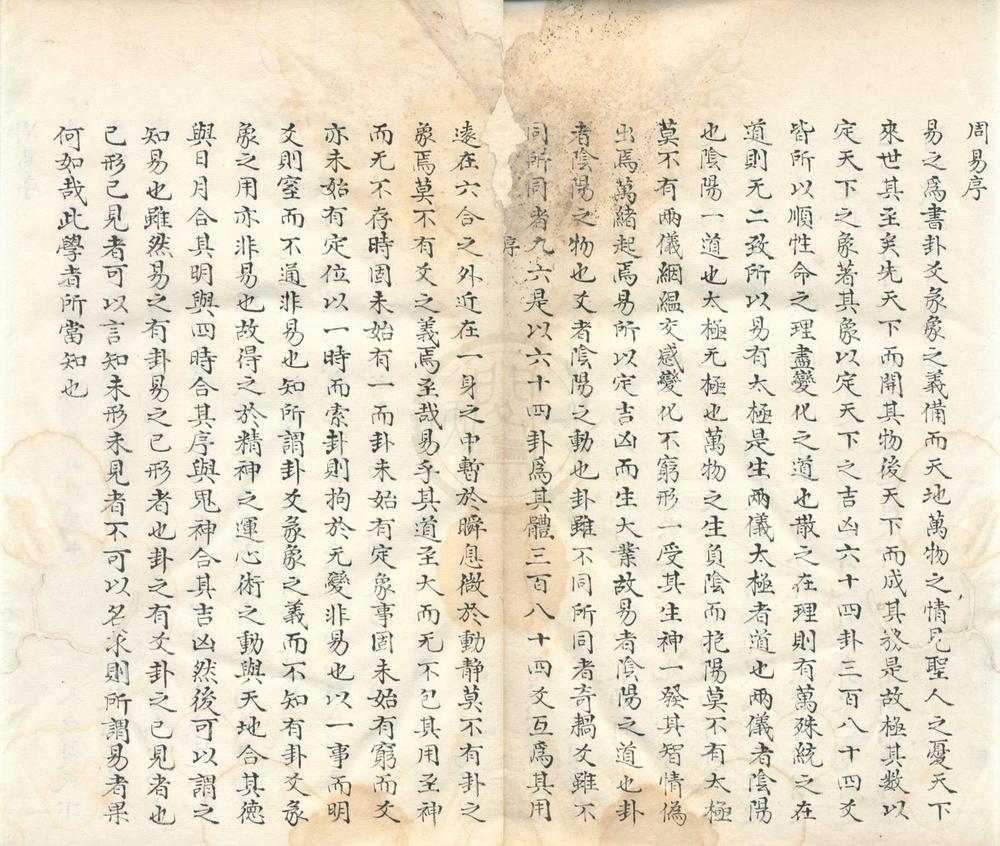 周易序
易之爲書卦爻彖象之義備而天地萬物之情見聖人之憂天下
來世其至矣先天下而開其物後天下而成其務是故極其數以
定天下之象著其象以定天下之吉凶六十四卦三百八十四爻
皆所以順性命之理盡變化之道也散之在理則有萬殊統之在
道則无二致所以易有太極是生兩儀太極者道也兩儀者陰陽
也陰陽一道也太極无極也萬物之生負陰而抱陽莫不有太極
莫不有兩儀絪縕交感變化不窮形一受其生神一發其智情僞
出焉萬緒起焉易所以定吉凶而生大業故易者陰陽之道也卦
者陰陽之物也爻者陰陽之動也卦雖不同所同者奇耦爻雖不
同所同者九六是以六十四卦爲其體三百八十四爻互爲其用
序
遠在六合之外近在一身之中暫於瞬息微於動静莫不有卦之
象焉莫不有爻之義焉至哉易乎其道至大而无不包其用至神
而无不存時固未始有一而卦未始有定象事固未始有窮而爻
亦未始有定位以一時而索卦則拘於无變非易也以一事而明
爻則窒而不通非易也知所謂卦爻彖象之義而不知有卦爻彖
象之用亦非易也故得之於精神之運心術之動與天地合其德
與日月合其明與四時合其序與鬼神合其吉凶然後可以謂之
知易也雖然易之有卦易之已形者也卦之有爻卦之已見者也
已形已見者可以言知未形未見者不可以名求則所謂易者果
何如哉此學者所當知也